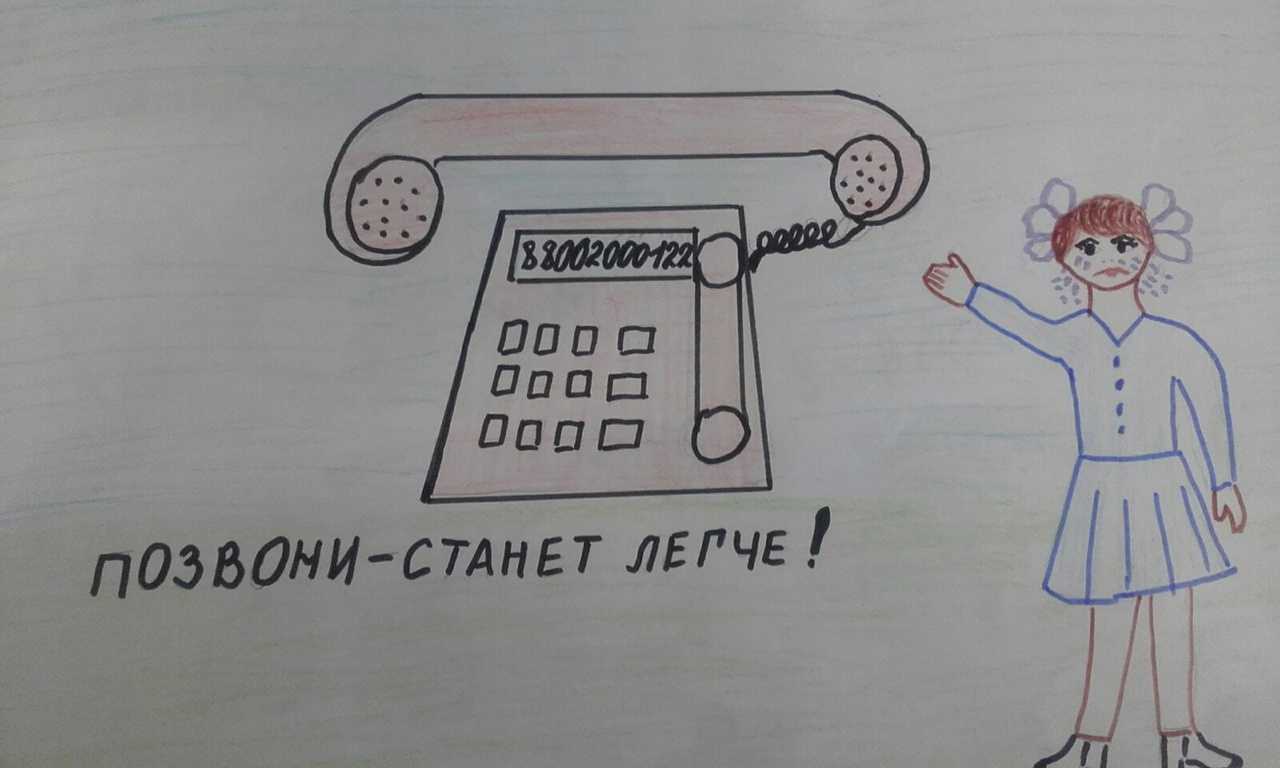 88002000122
ПОЗВОНИ-СТАНЕТ ЛЕГЧЕ!